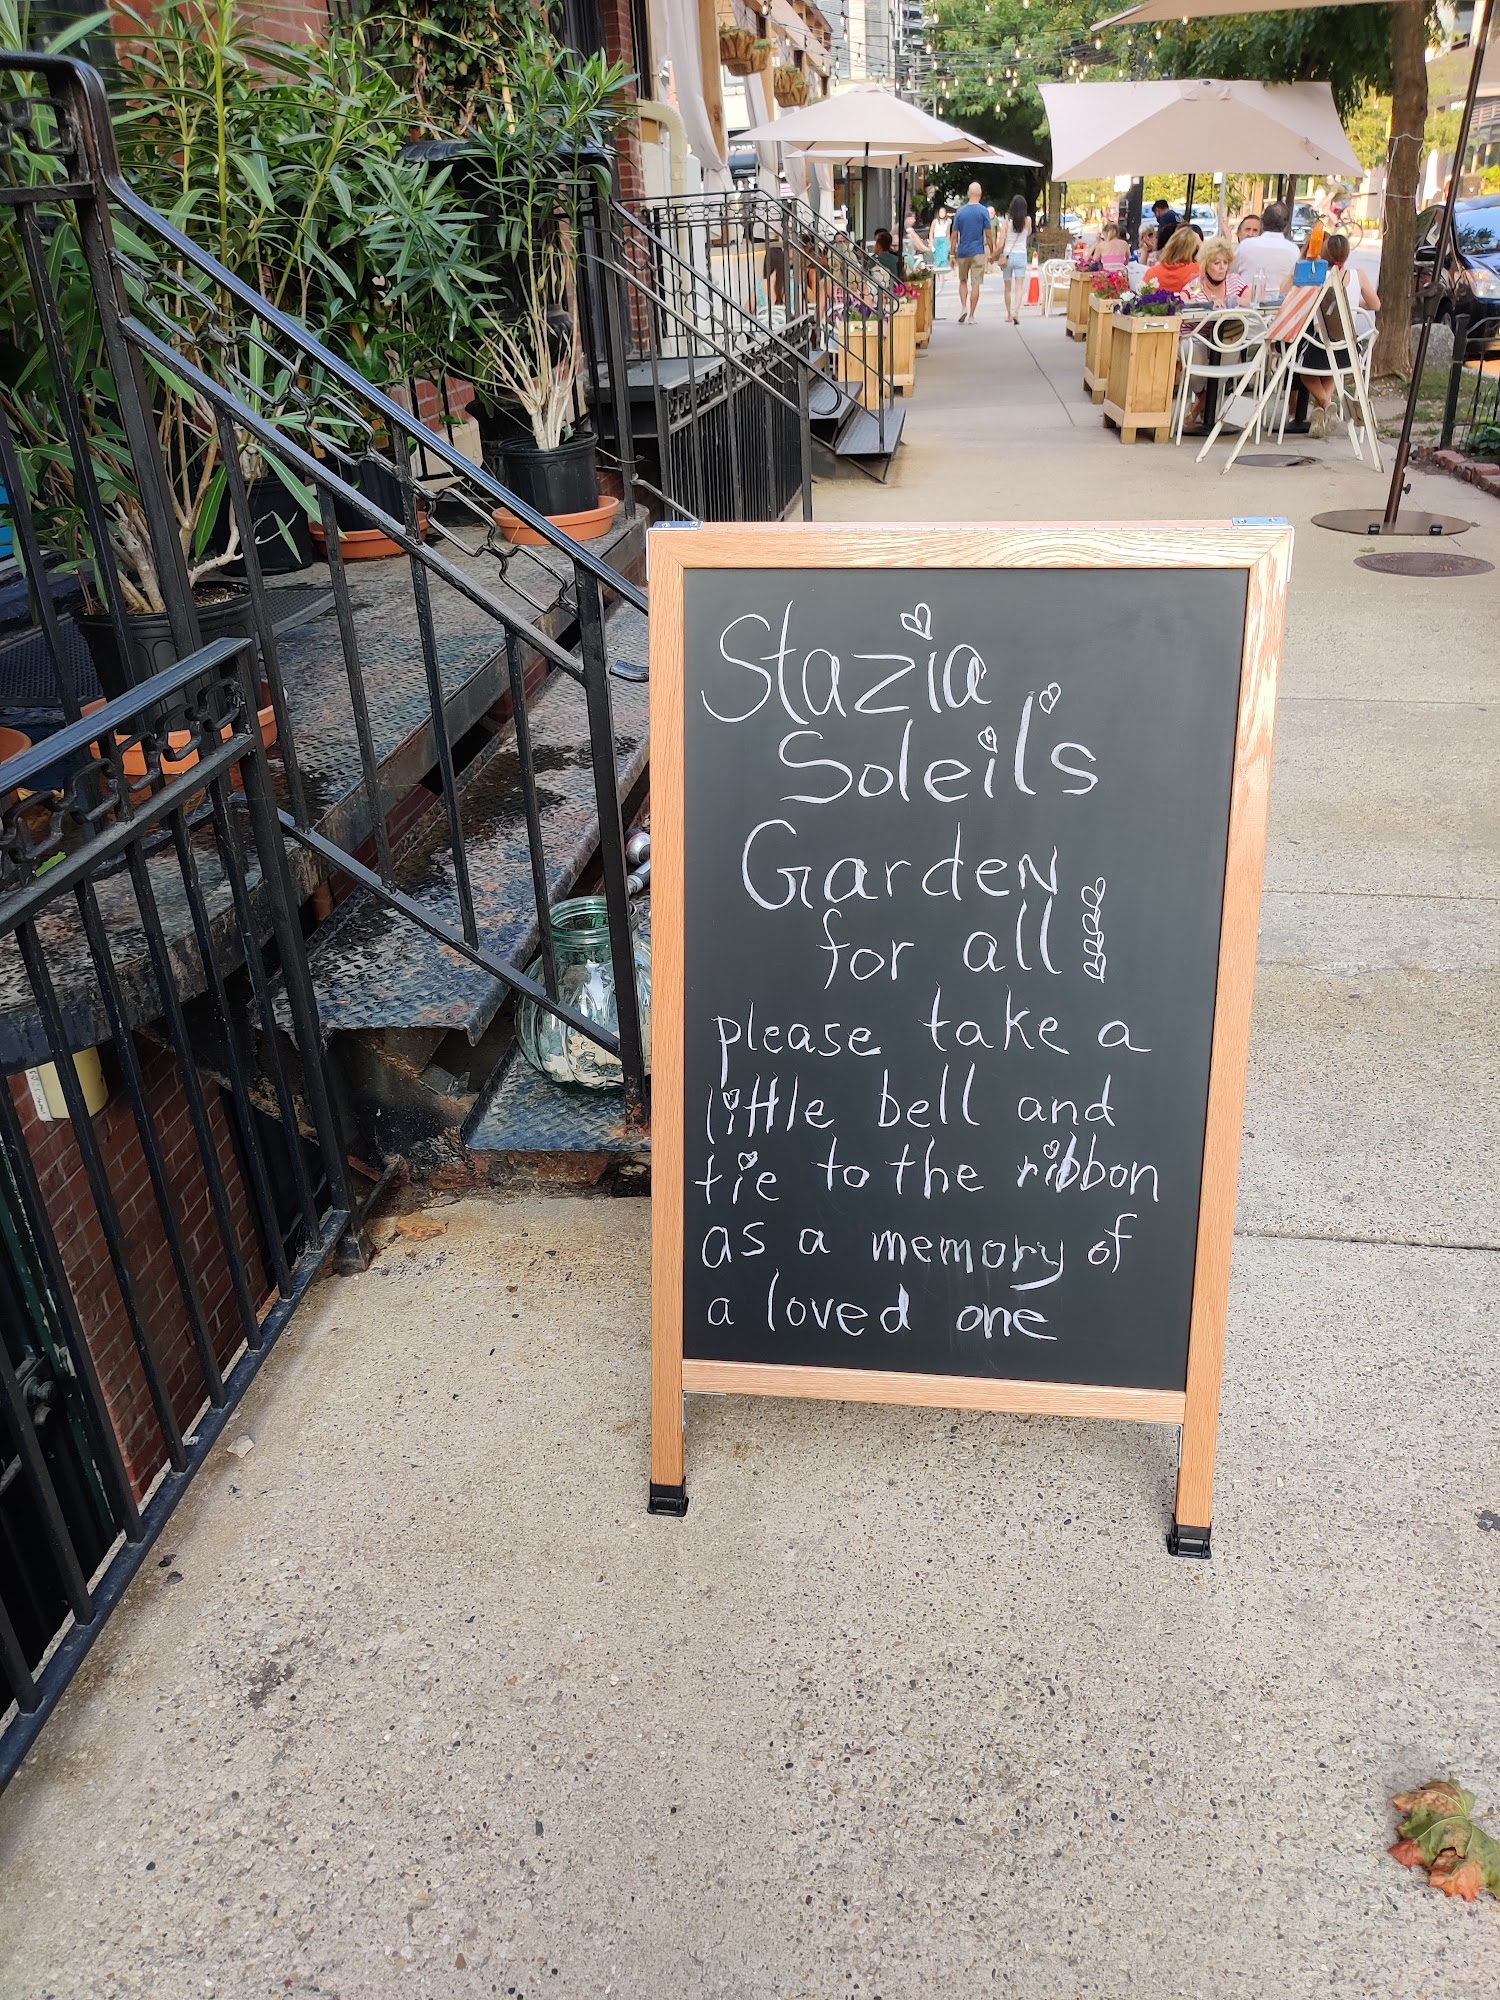 Stazia
Soleil's
Garden
for all
please take a
little bell and
tie to the ribbon
as a memory of
a loved one